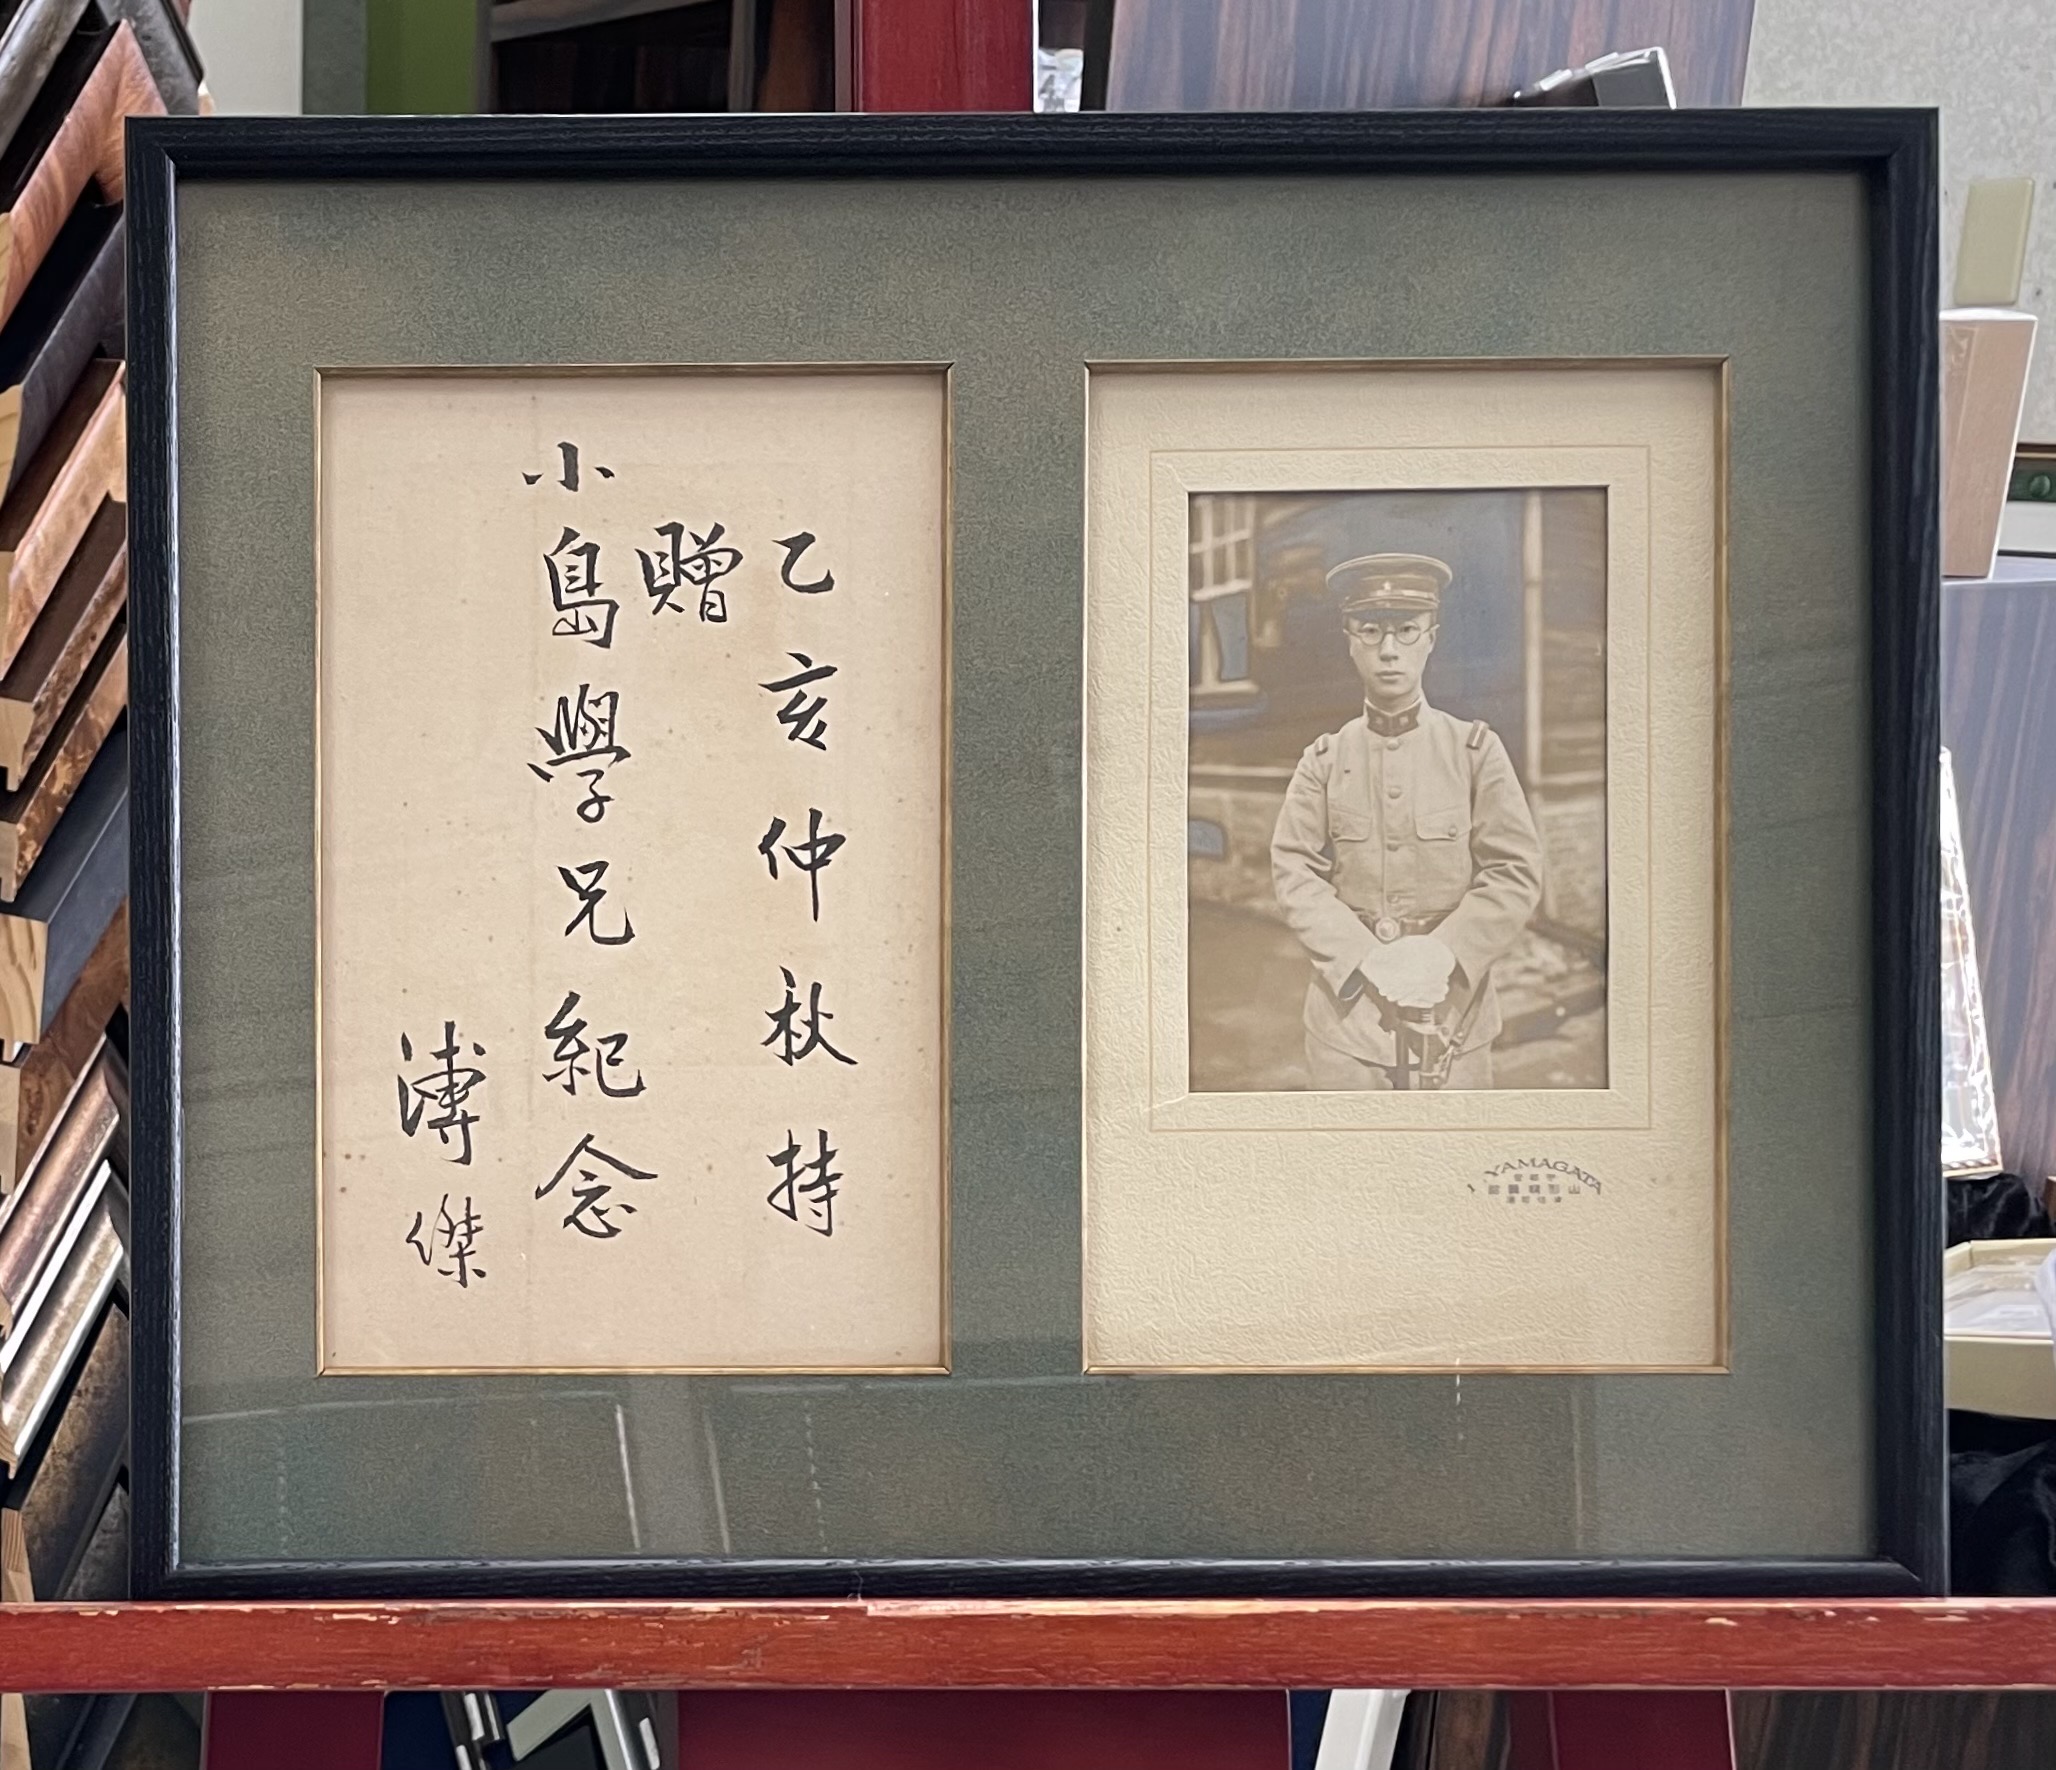 乙亥仲秋持
贈
小島學兄紀念
溥傑
YAMAGATA